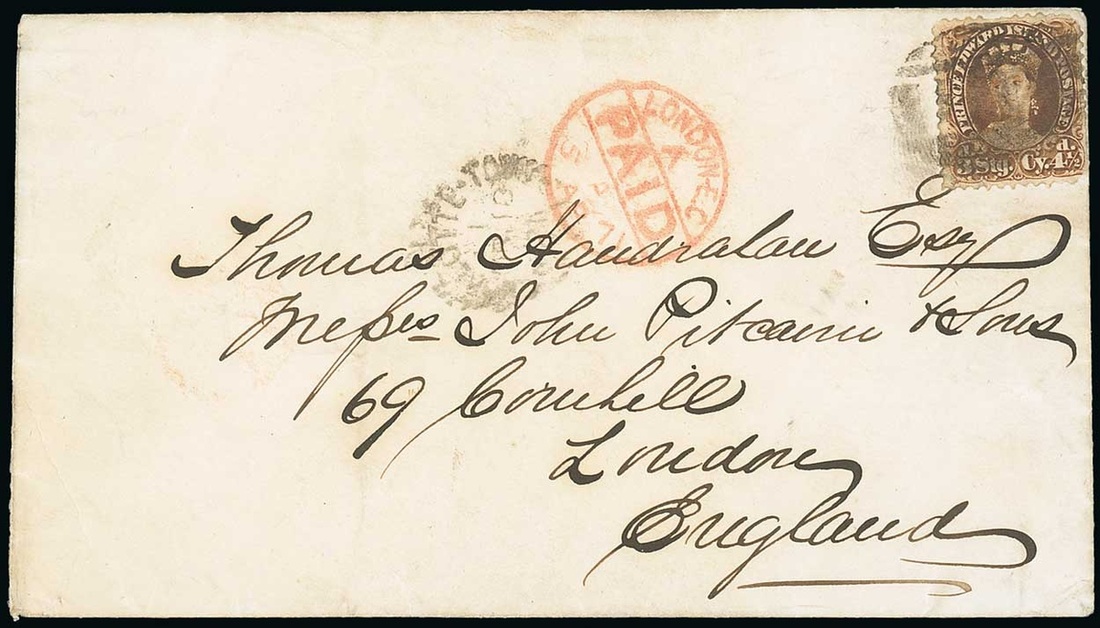 PRINCE EDWARD ISLAND POSTAGE
3d. Stg. Cy. 4½d.
LONDON-E.C
X
PAID
TTE-TOWN
Thomas Handrahan Esq
Messrs John Pitcairn & Sons
69 Cornhill
London
England